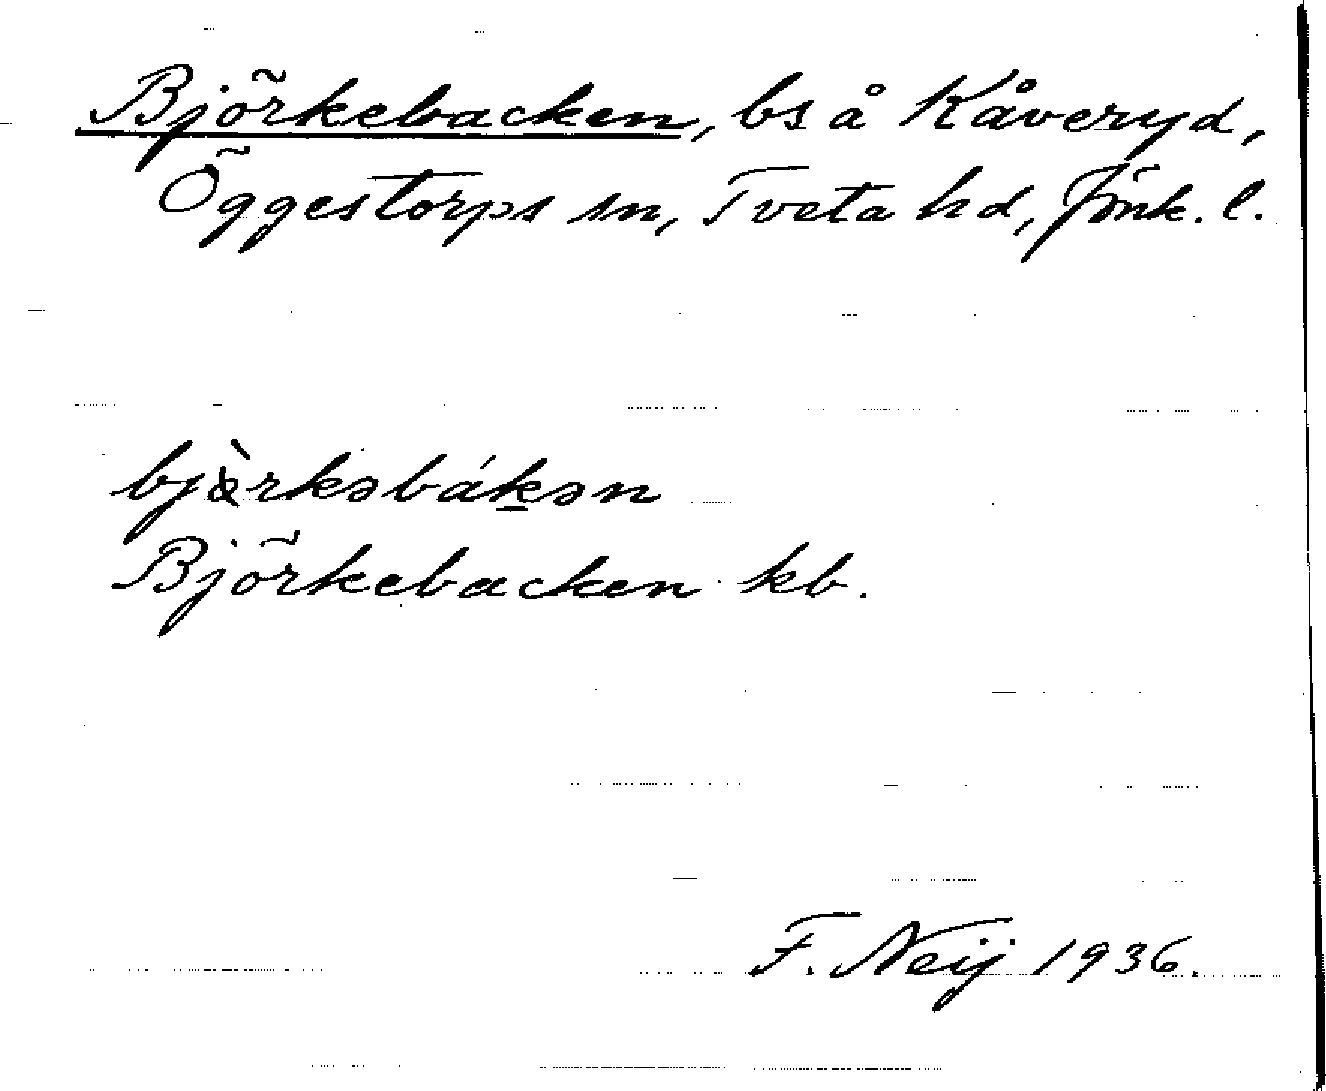 Björkebacken, bs å Kåveryd,
Öggestorps sn, Tveta hd, Jönk. l.
bjὰrkəbákən
Björkebacken kb.
F. Neij 1936.